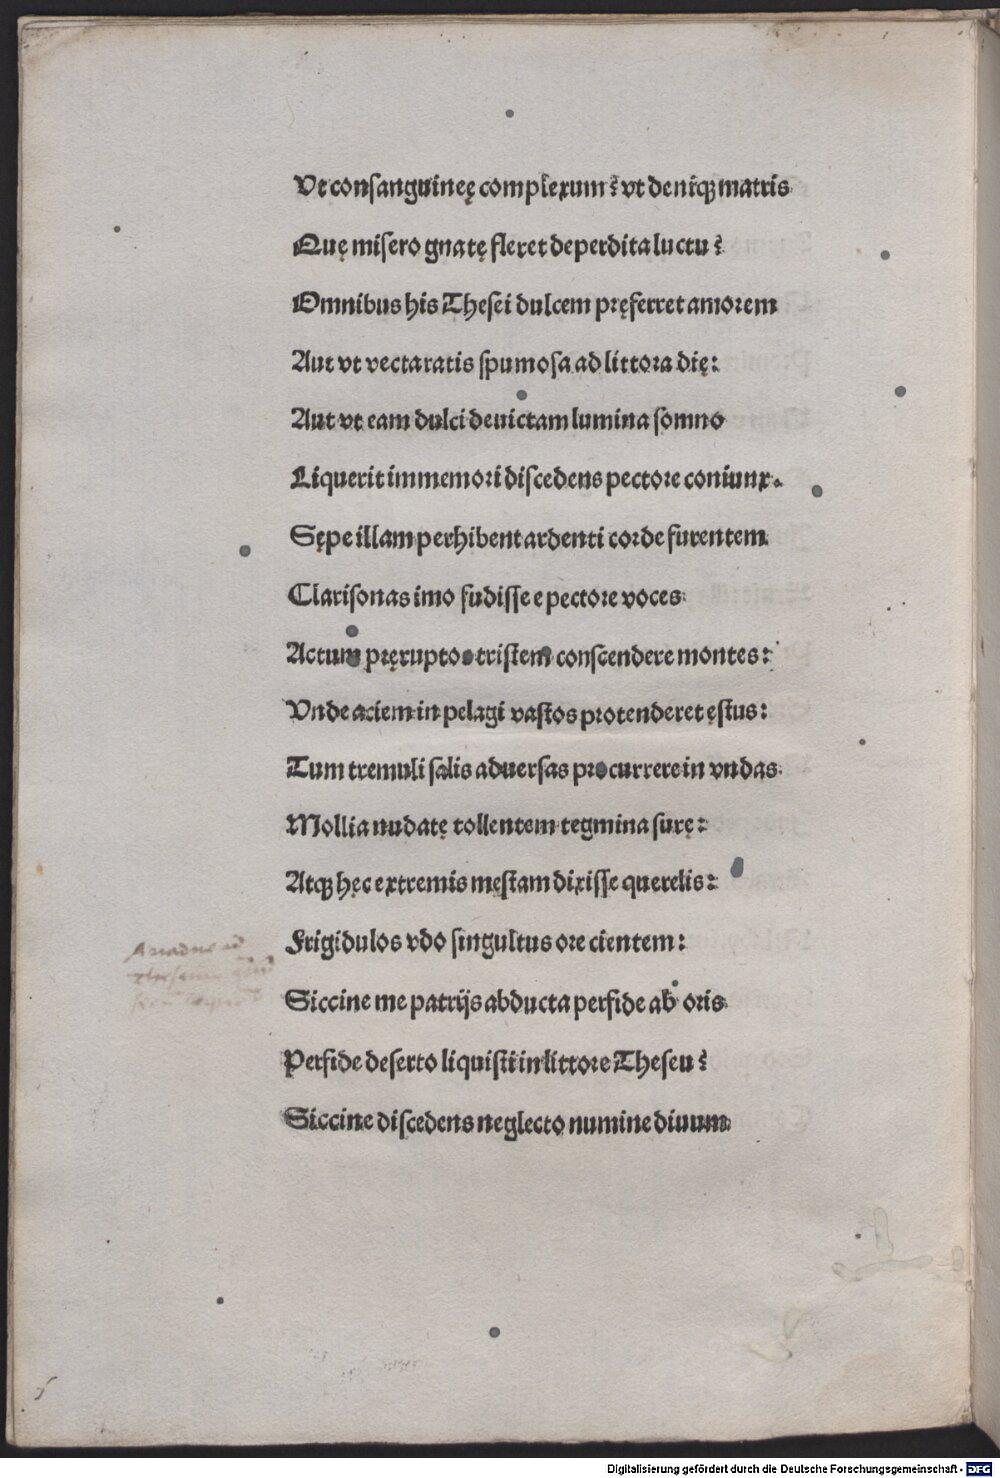 Vt consanguineę complexum? vt deniqꝫ matris
Quę misero gnatę fleret deperdita luctu?
Omnibus his Thesei dulcem pręferret amorem
Aut vt vecta ratis spumosa ad littora dię:
Aut vt eam dulci deuictam lumina somno
Liquerit immemori discedens pectore coniunx.
Sępe illam perhibent ardenti corde furentem
Clarisonas imo fudisse e pectore voces
Actum pręruptos tristem conscendere montes:
Vnde aciem in pelagi vastos protenderet ęstus:
Tum tremuli salis aduersas procurrere in vndas
Mollia nudatę tollentem tegmina surę:
Atqꝫ hęc extremis męstam dixisse querelis:
Frigidulos vdo singultus ore cientem:
Siccine me patrijs abducta perfide ab oris
Perfide deserto liquisti in littore Theseu?
Siccine discedens neglecto numine diuum
Digitalisierung gefördert durch die Deutsche Forschungsgemeinschaft - DFG